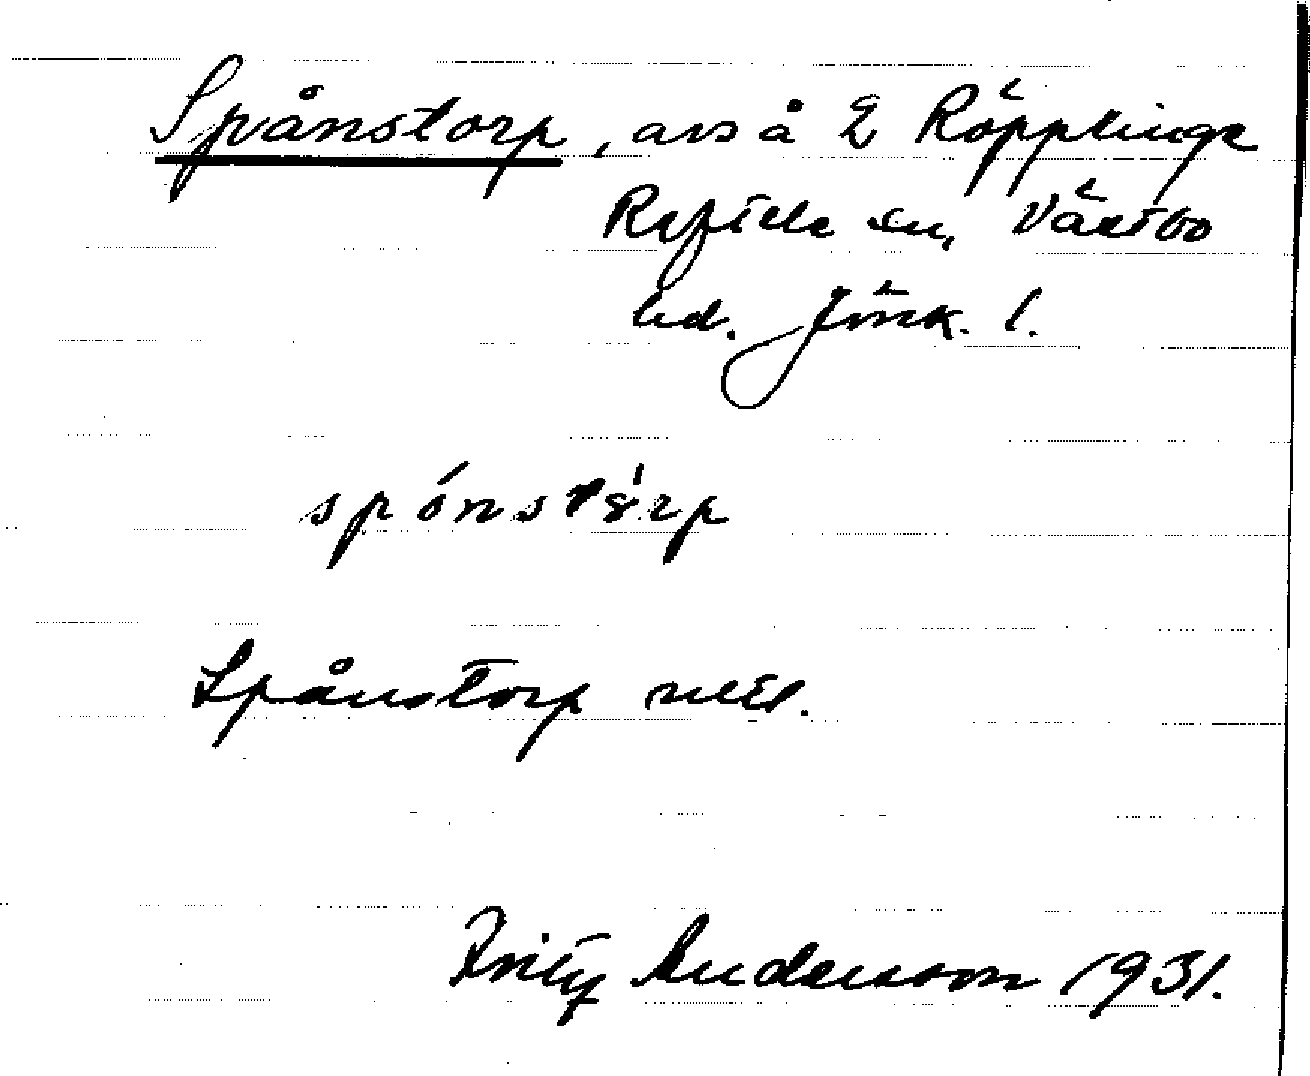 Spånstorp, avs å 2 Röpplinge
Reftele sn, Västbo
hd. Jönk. l.
spónstèrp
Spånstorp
Fritz Andersson 1931.